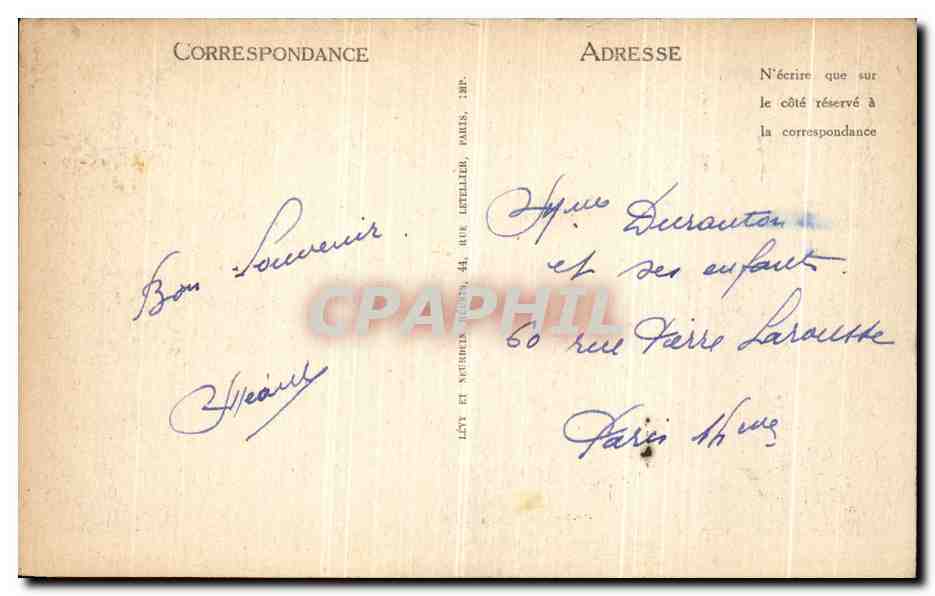 CORRESPONDANCE
ADRESSE
N'écrire que sur
le côté réservé à
la correspondance
Bon Souvenir.
LÉVY ET NEURDEIN RÉUNIS, 44, RUE LETELLIER, PARIS, IMP.
Mme Duranton
et ses enfants.
60 rue Pierre Larousse
Paris 14me
CPAPHIL